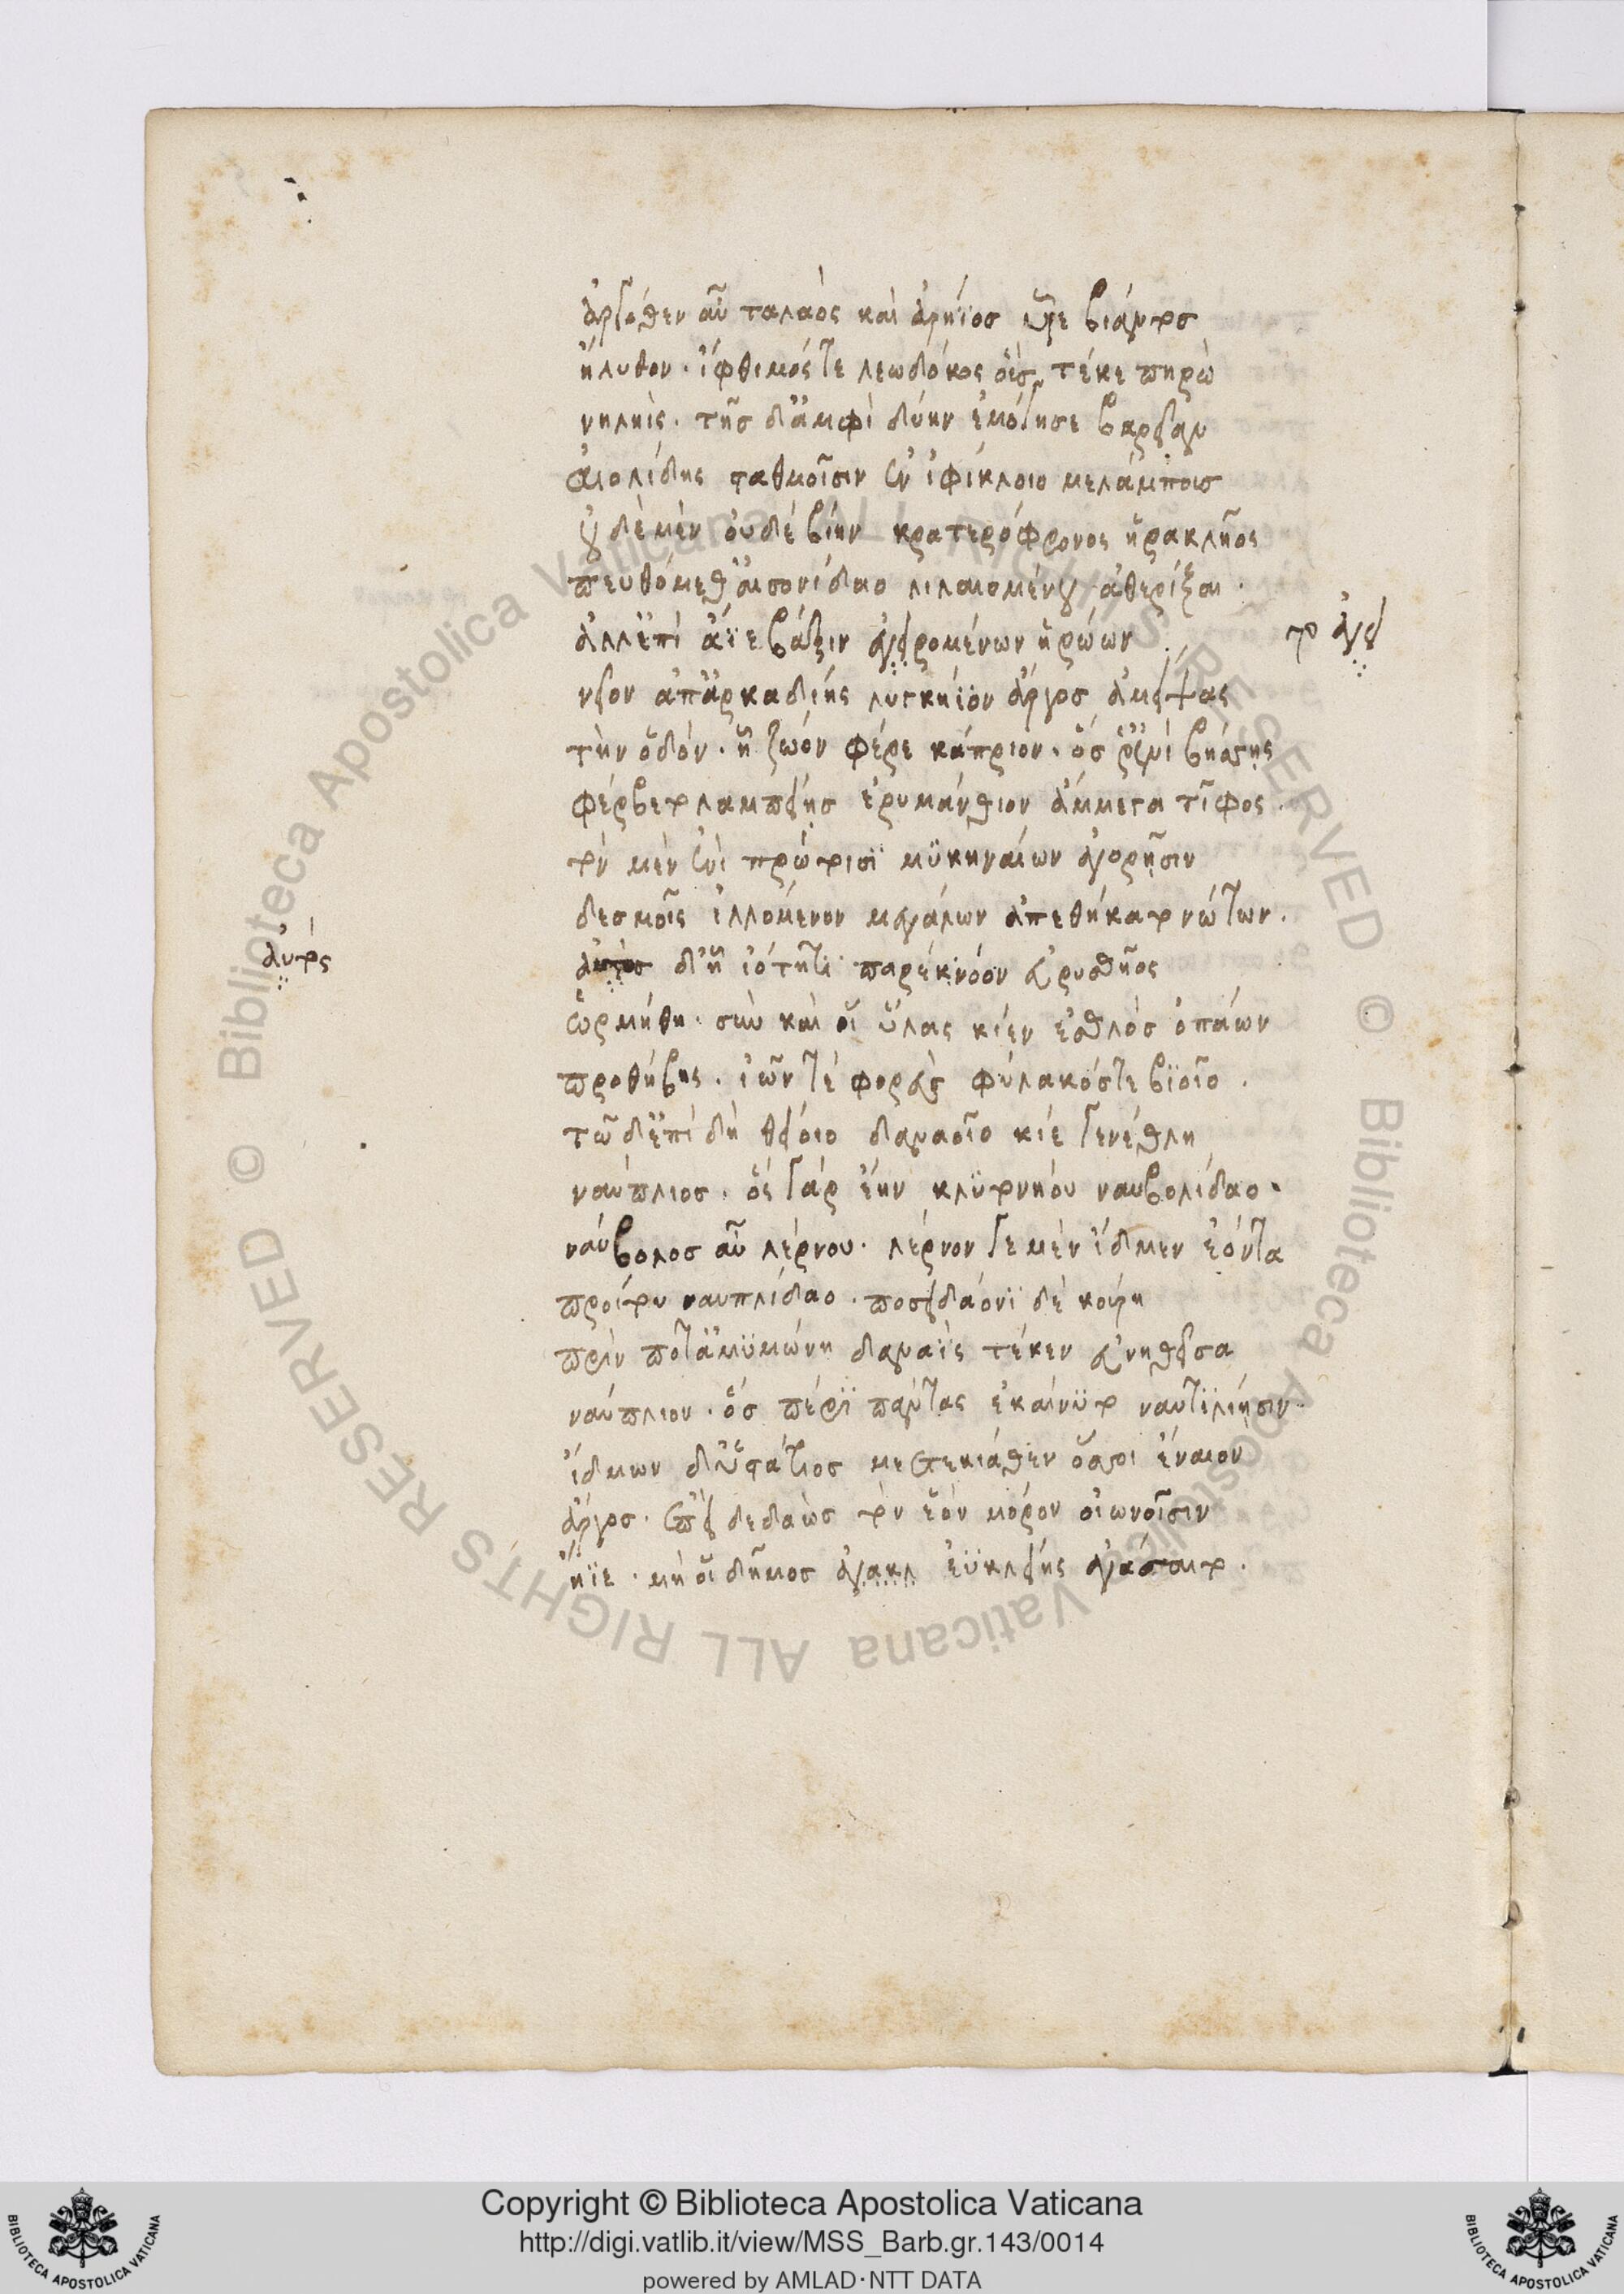 ἀργόθεν αὖ ταλαὸς καὶ ἀρήϊος υἷε βίαντος
ἤλυθον· ἴφθιμός τε λεωδόκος οὓς τέκε πηρὼ
νηληίς· τῆς δ' ἀμφὶ δύην ἐμόγησε βαρεῖαν
αἰολίδης σταθμοῖσιν ἐν ἰφίκλοιο μελάμπους
οὐδὲ μὲν οὐδὲ βίην κρατερόφρονος ἡρακλῆος
πευθόμεθ' αἰσονίδαο λιλαιομένου ἀθερίξαι·
ἀλλ' ἐπὶ ἄϊε βάξιν ἀγειρομένων ἡρώων
το ἀγει
νεῖον ἀπ' ἀρκαδίης λυγκήϊον ἄργος ἀμείψας
τὴν ὁδόν· ᾗ ζωὸν φέρε κάπριον· ὅς ῥ' ἐνὶ βήσσῃς
φέρβετο λαμπείης ἐρυμάνθιον ἄμμεγα τῖφος·
τὸν μὲν ἐνὶ πρώτοισϊ μϋκηναίων ἀγορῇσιν
δεσμοῖς ἰλλόμενον μεγάλων ἀπεθήκατο νώτων·
ἀυτὸς
αὐτὸς δ' ᾗ ἰότητι παρὲκ νόον εὐρυσθῆος
ὡρμήθη· σὺν καὶ οἱ ὕλας κίεν ἐσθλὸς ὀπάων
πρωθήβης· ἰῶν τε φορεὺς φύλακός τε βϊοῖο·
τῶ δ' ἐπὶ δὴ θείοιο δαναοῖο κίε γενέθλη
ναύπλιος· ὃς γὰρ ἔην κλϋτονήου ναυβολίδαο·
ναύβολος αὖ λέρνου· λέρνον γε μὲν ἴδμεν ἐόντα
προίτου ναυπλίδαο· ποσειδάονϊ δὲ κούρη
πρίν ποτ' ἀμϋμώνη δαναῒς τέκεν εὐνηθεῖσα
ναύπλιον· ὃς πέρϊ πάντας ἐκαίνϋτο ναυτϊλίῃσιν
ἴδμων δ' ὑστάτιος μετεκίαθεν ὅσσοι ἔναιον
ἄργος· ἐπεὶ δεδαὼς τὸν ἑὸν μόρον οἰωνοῖσιν
ἤϊε· μή οἱ δῆμος ἀγακλ ἐϋκλείης ἀγάσαιτο·
Copyright © Biblioteca Apostolica Vaticana
http://digi.vatlib.it/view/MSS_Barb.gr.143/0014
powered by AMLAD·NTT DATA
BIBLIOTECA APOSTOLICA VATICANA
BIBLIOTECA APOSTOLICA VATICANA
© Biblioteca Apostolica Vaticana ALL RIGHTS RESERVED © Biblioteca Apostolica Vaticana ALL RIGHTS RESERVED